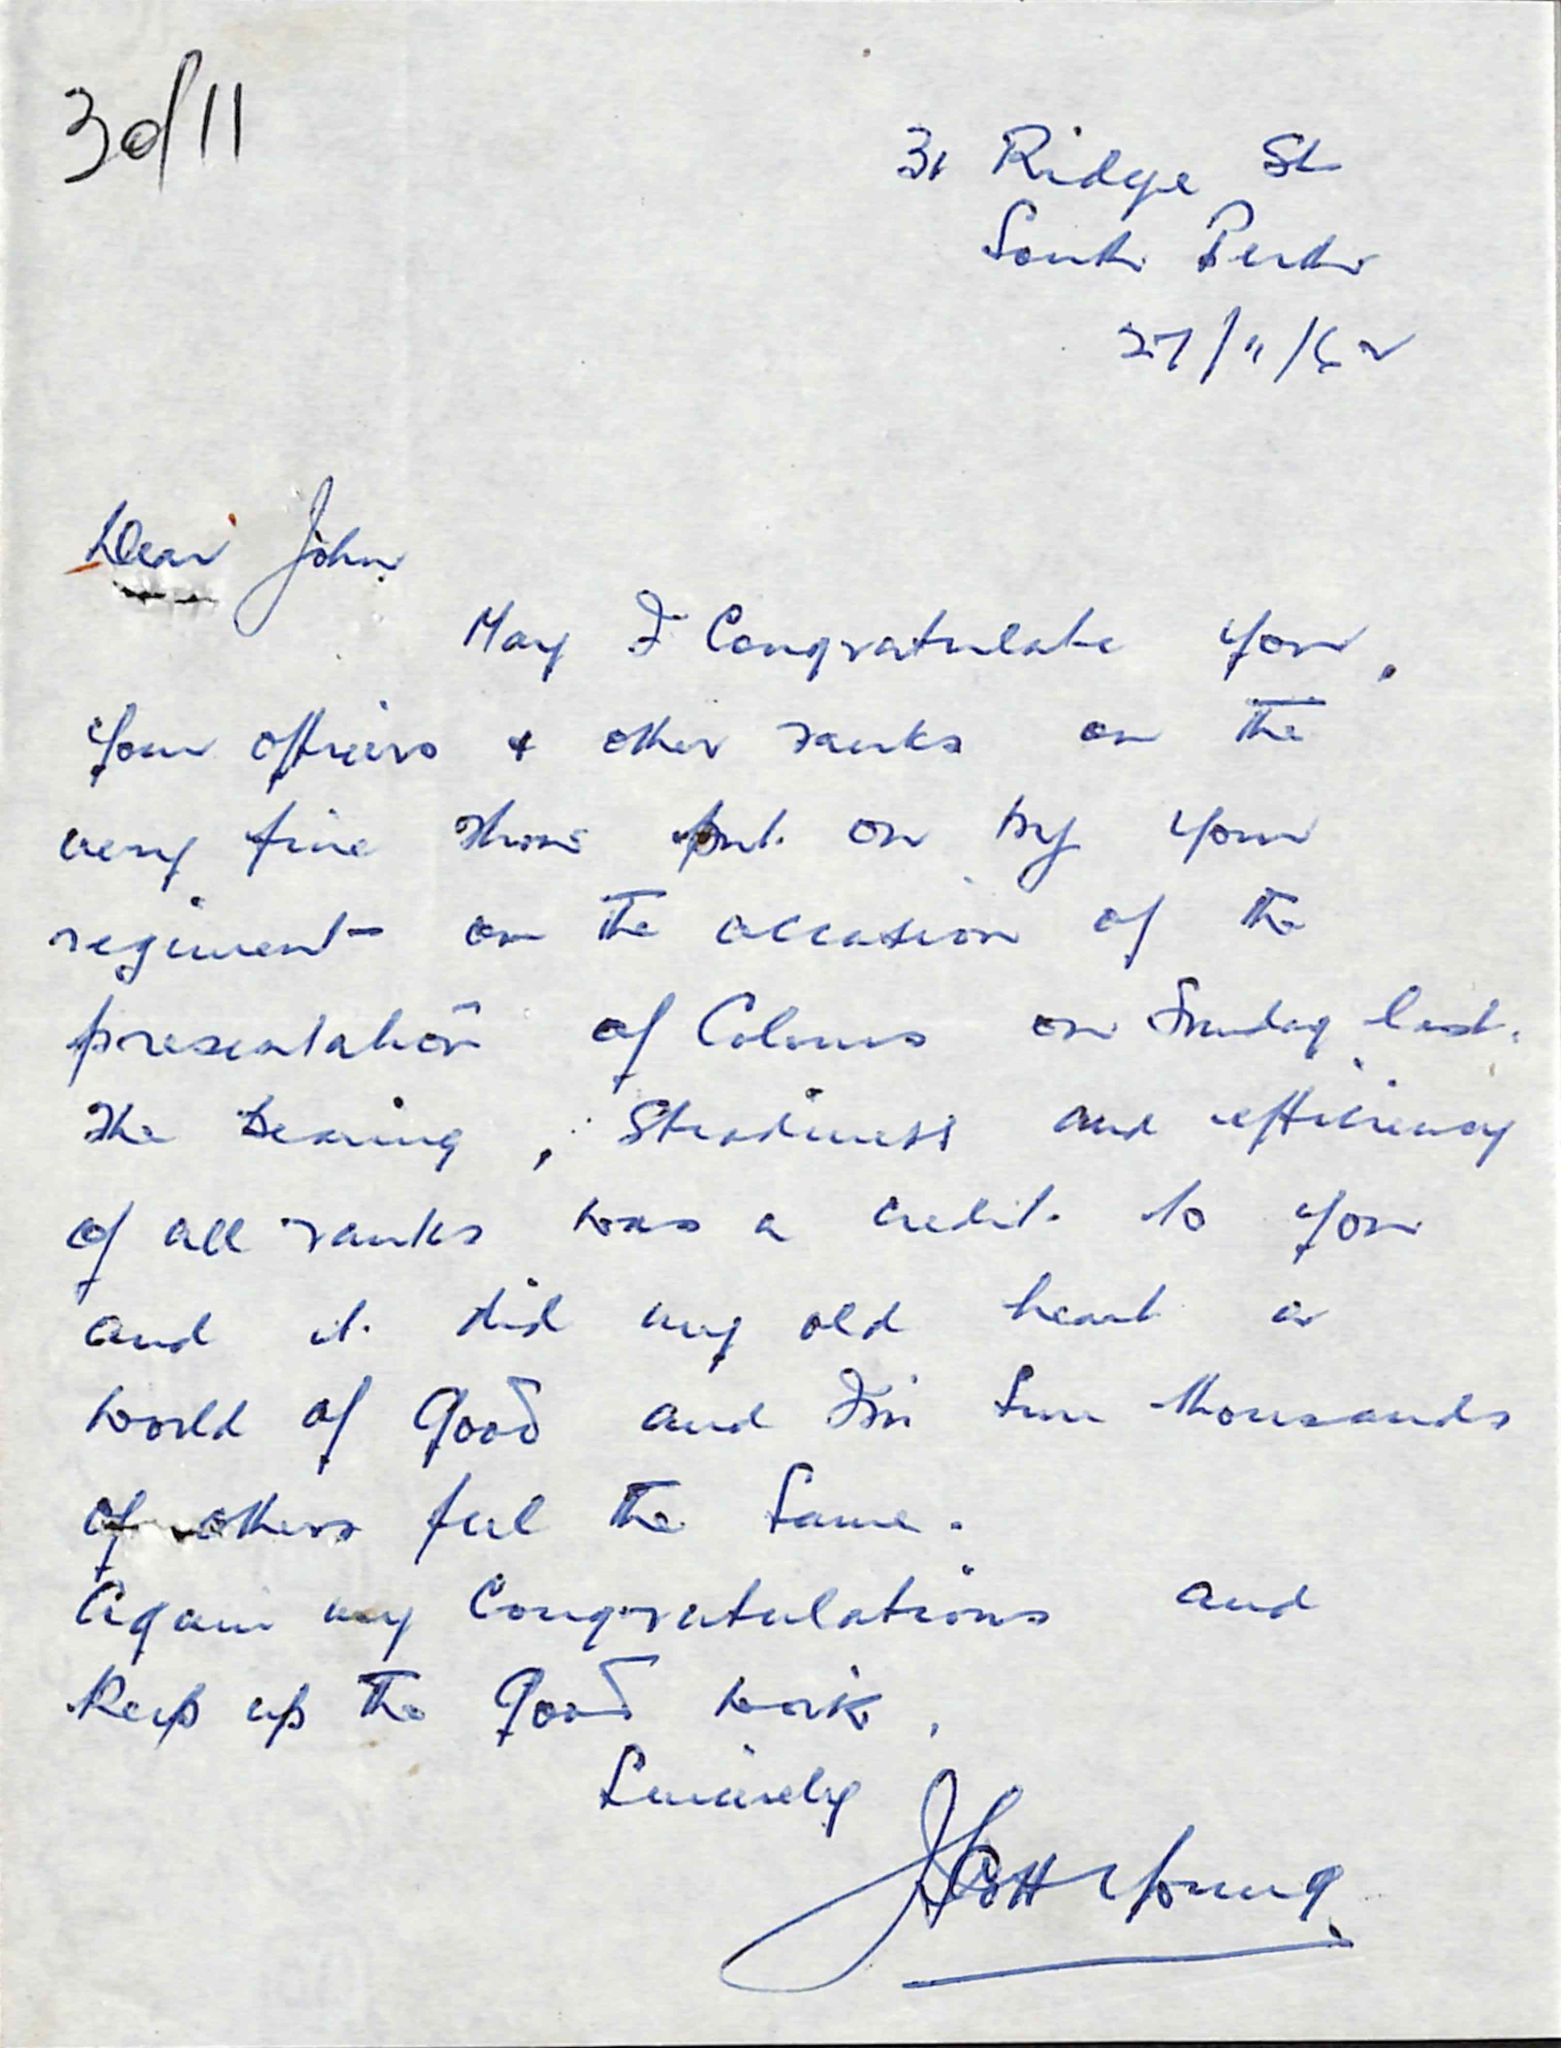 30/11
31 Ridge St
South Perth
27/11/62
Dear John
May I Congratulate you,
your officers & other ranks on the
very fine show put on by your
regiment on the occasion of the
presentation of Colours on Sunday last.
The bearing, Steadiness and efficiency
of all ranks was a credit to you
and it did my old heart a
world of good and I'm sure thousands
of others feel the same.
Again my Congratulations and
Keep up the good work.
Sincerely
J Scott Young